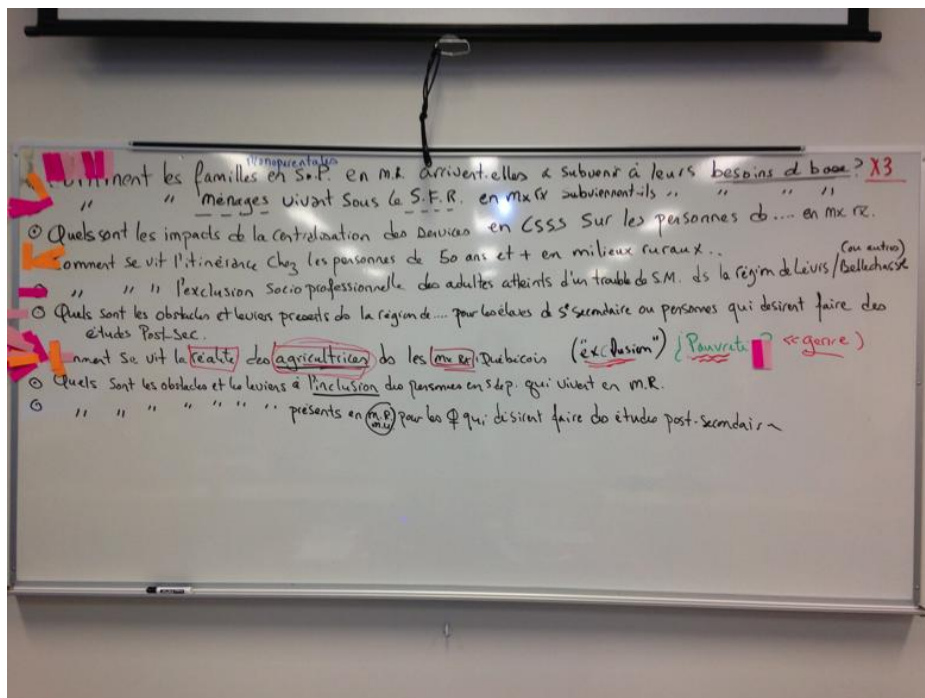 monoparentales
mment les familles en S.P. en m.R. arrivent-elles a subvenir à leurs besoins d base? X3
" " ménages vivant sous le S.F.R. en mx rx subviennent-ils " " " "
Quels sont les impacts de la centralisation des services en CSSS sur les personnes d .... en mx rx.
omment se vit l'itinérance chez les personnes de 50 ans et + en milieux ruraux..
(ou autres)
" " " l'exclusion socio professionnelle des adultes atteints d'un trouble de S.M. ds la région de Lévis/Bellechasse
Quels sont les obstacles et leviers présents ds la région de.... pour les élèves d 5e secondaire ou personnes qui désirent faire des
études Post-Sec.
mment se vit la réalité des agricultrices ds les mx Rx Québécois ("exclusion") ¿Pauvreté ? «genre)
Quels sont les obstacles et les leviers à l'inclusion des personnes en s de p. qui vivent en m.R.
" " " " " " présents en m.R. m.u. pour les ♀ qui désirent faire des études post-secondair